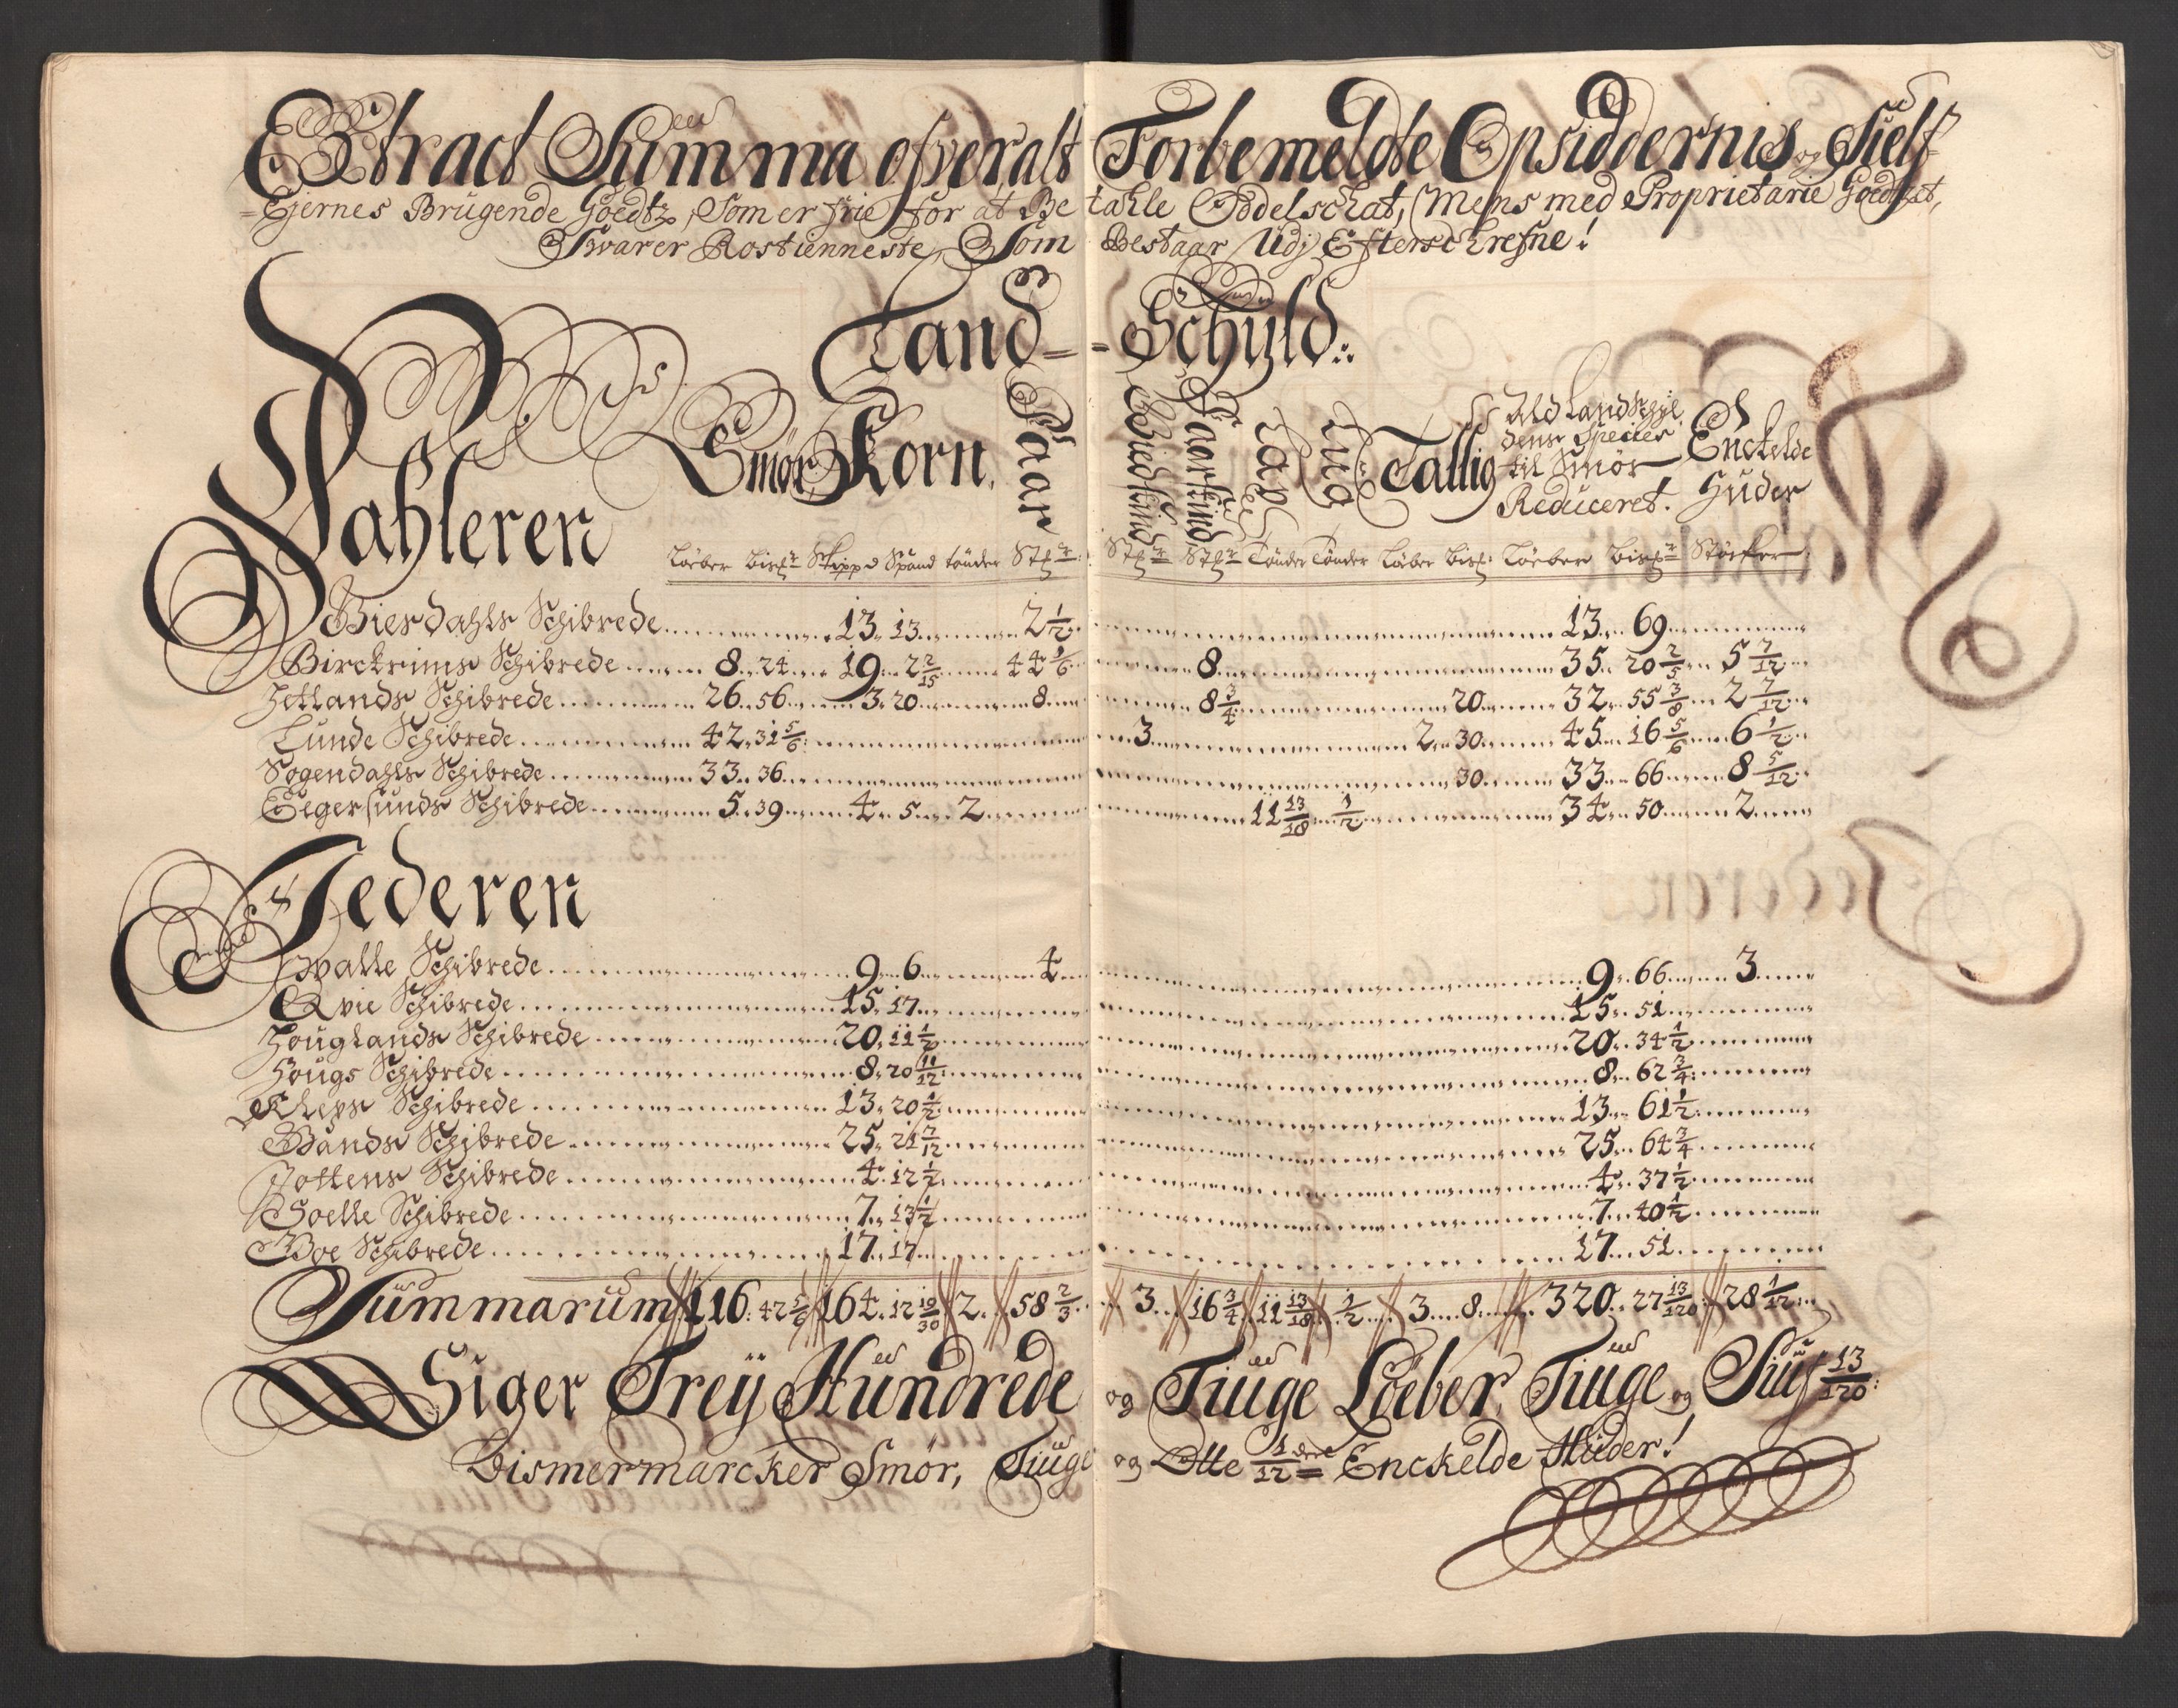 Extract Summa ofver alt Forbemeldte Opsiddernis og Sielf
=Ejernes Brugende Goedtz, Som er frie for at Betahle Oddelschat, Mens med Proprietarie Goedtzet,
Svarer Rostienneste, Som Bestaar Udj Efterschrefne!
Land= =Schyld:
Dahleren Smör, Korn, Faar Giedskind Faarskind Lax Tallig Ald Landschyldens Species til Smör Reduceret. Enckelde Huder
Löeber Bispd Skippd Spand tönder Stkr Stkr Stkr Tönder Tönder Löeber Bispd Löeber Bispd Störcker
Bierdahls Schibrede 13. 13. 2 1/2 13. 69.
Birckrims Schibrede 8. 24. 19. 2 2/15 44 1/6 8. 35. 20 2/5 5 7/12
Hetlands Schibrede 26. 56. 3. 20. 8. 8 3/4 20. 32. 55 3/8 2 7/12
Lunde Schibrede 42. 31 5/6 3. 2. 30. 45. 16 5/6 6 1/2
Sogendahls Schibrede 33. 36. 30. 33. 66. 8 5/12
Eegersunds Schibrede 5. 39. 4. 5. 2. 11 13/18 1/2 34. 50. 2.
Jederen
Hvalle Schibrede 9. 6. 4. 9. 66. 3.
Qvie Schibrede 15. 17. 15. 51.
Houglands Schibrede 20. 11 1/2 20. 34 1/2
Hougs Schibrede 8. 20 11/12 8. 62 3/4
Kleps Schibrede 13. 20 1/2 13. 61 1/2
Bands Schibrede 25. 21 7/12 25. 64 3/4
Jottens Schibrede 4. 12 1/2 4. 37 1/2
Soelle Schibrede 7. 13 1/2 7. 40 1/2
Boe Schibrede 17. 17. 17. 51.
Summarum 116. 42 5/6 164. 12 19/30 2. 58 2/3 3. 16 3/4 11 13/18 1/2 3. 8. 320. 27 13/120 28 1/12
Siger Treÿ Hundrede og Tiuge Löeber, Tiuge og Siuf 13/120:
Bismermarcker Smör, Tiuge og Otte 1/12 Enckelde Huder!